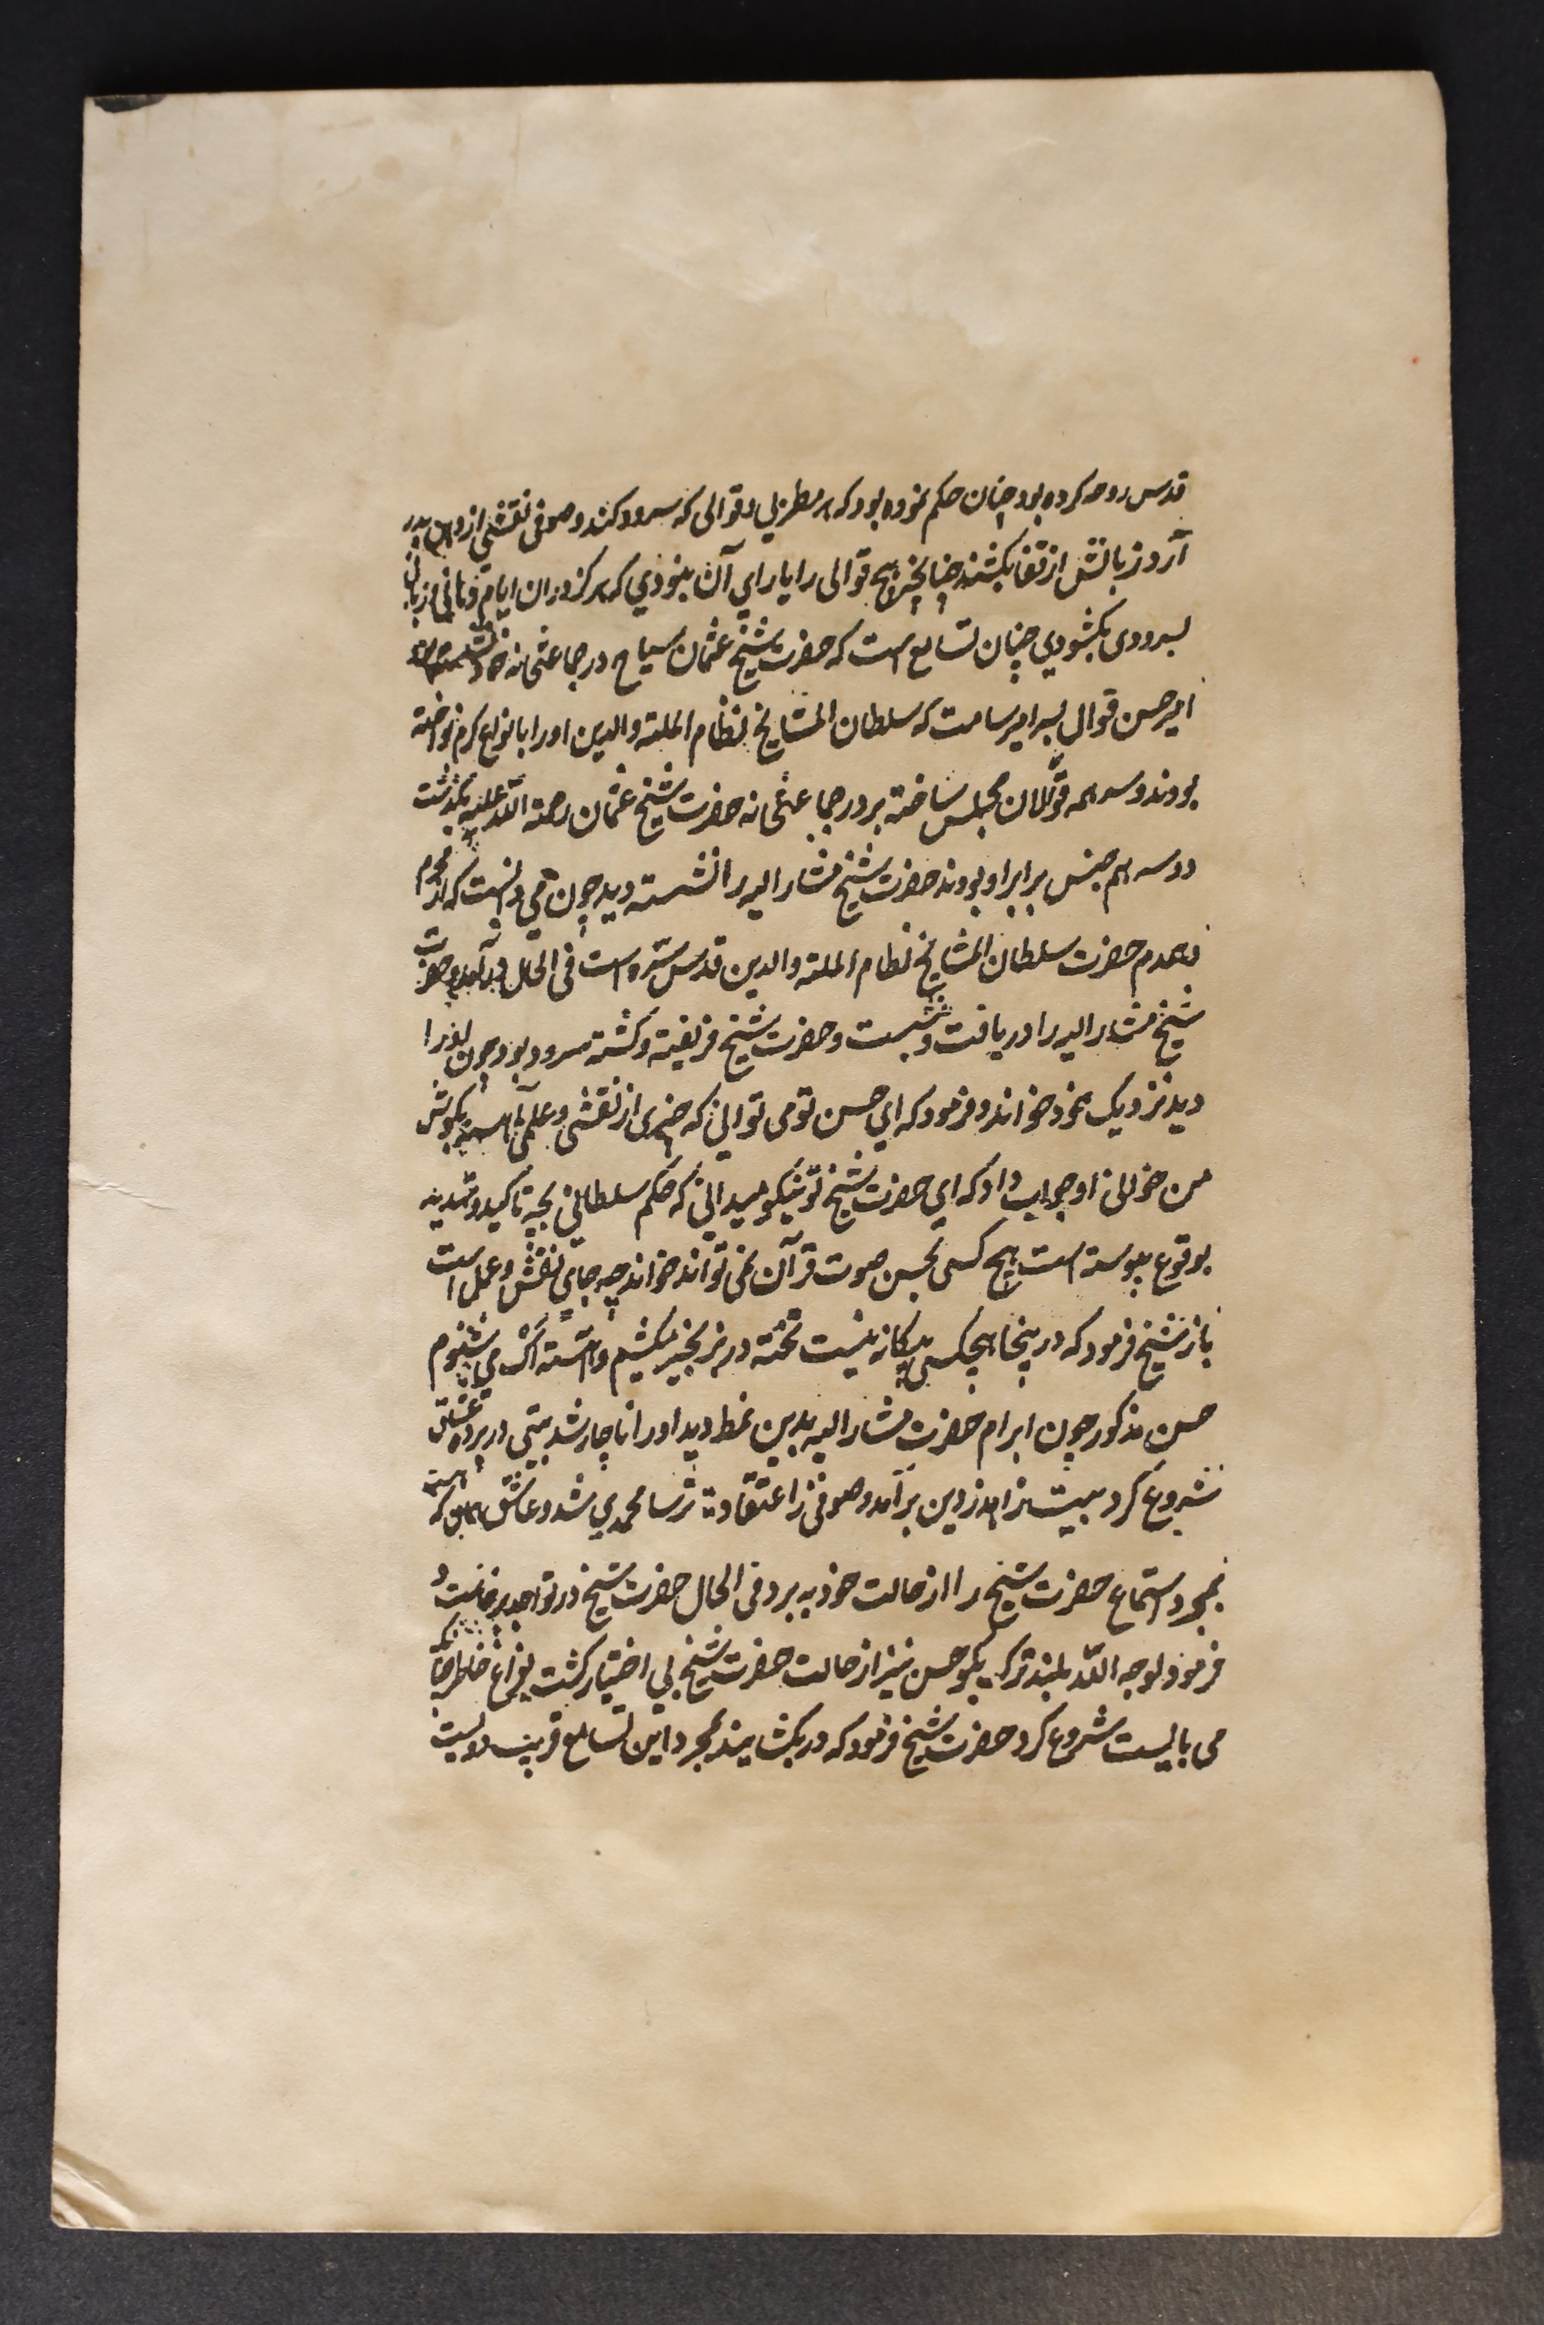 قدس روحه کرده بود چنان حکم نموده بود که هر مطربی و قوالی که سرود کند و صوفی نقشی از دهن بدر
آرد زبانش از قفا بکشند چنانچه هیچ قوالی را یارای آن نبودی که هرگز در ان ایام زبان
بسرودی بکشودی چنان تسامع است که حضرت شیخ عثمان سیاح در جماعتخانه خود
امیر حسن قوال پسر امیر سامت که سلطان المشایخ نظام الملته والدین او را بانواع کرم نواخته
بودند و سر همه قوالان مجلس ساخته بر در جماعتخانه حضرت شیخ عثمان رحمة الله علیه بکذشت
دو سه هم جنس برابر او بودند حضرت شیخ مشار الیه را نشسته دید چون می دانست که از محرم
و همدم حضرت سلطان المشایخ نظام الملته والدین قدس سره است فی الحال در آمد و حضرت
شیخ مشار الیه را دریافت و بنشست و حضرت شیخ فریفته و کشته سرود بود چون او را
دید نزدیک خود خواند و فرمود که ای حسن تو می توانی که چیزی از نقشی و عملی آهسته بکوش
من خوانی او جواب داد که ای حضرت شیخ تو نیکو میدانی که حکم سلطانی بچه تاکید و تهدید
بوقوع پیوسته است هیچ کسی بحسن صوت قرآن نمی تواند خواند چه جای نقش و عمل است
باز شیخ فرمود که در ینجا هیچکسی بیکانه نیست تخته در زنجیر میکشیم و آهسته اک می شنوم
حسن مذکور چون ابرام حضرت مشار الیه بدین نمط دید او را ناچار شد بیتی در پرده عشاق
شروع کرد بیت زاهد ز دین برآمد و صوفی ز اعتقاد ترسا محمدی شد و عاشق همان که هست
بمجرد استماع حضرت شیخ را از حالت خود به برد فی الحال حضرت شیخ در تواجد برخاست و
فرمود لوجه الله بلند ترک بکو حسن نیز از حالت حضرت شیخ بی اختیار کشت بفراغ خاطر چنانکه
می بالیست شروع کرد حضرت شیخ فرمود که در بکشایند بمجرد این تسامع قریب دویست